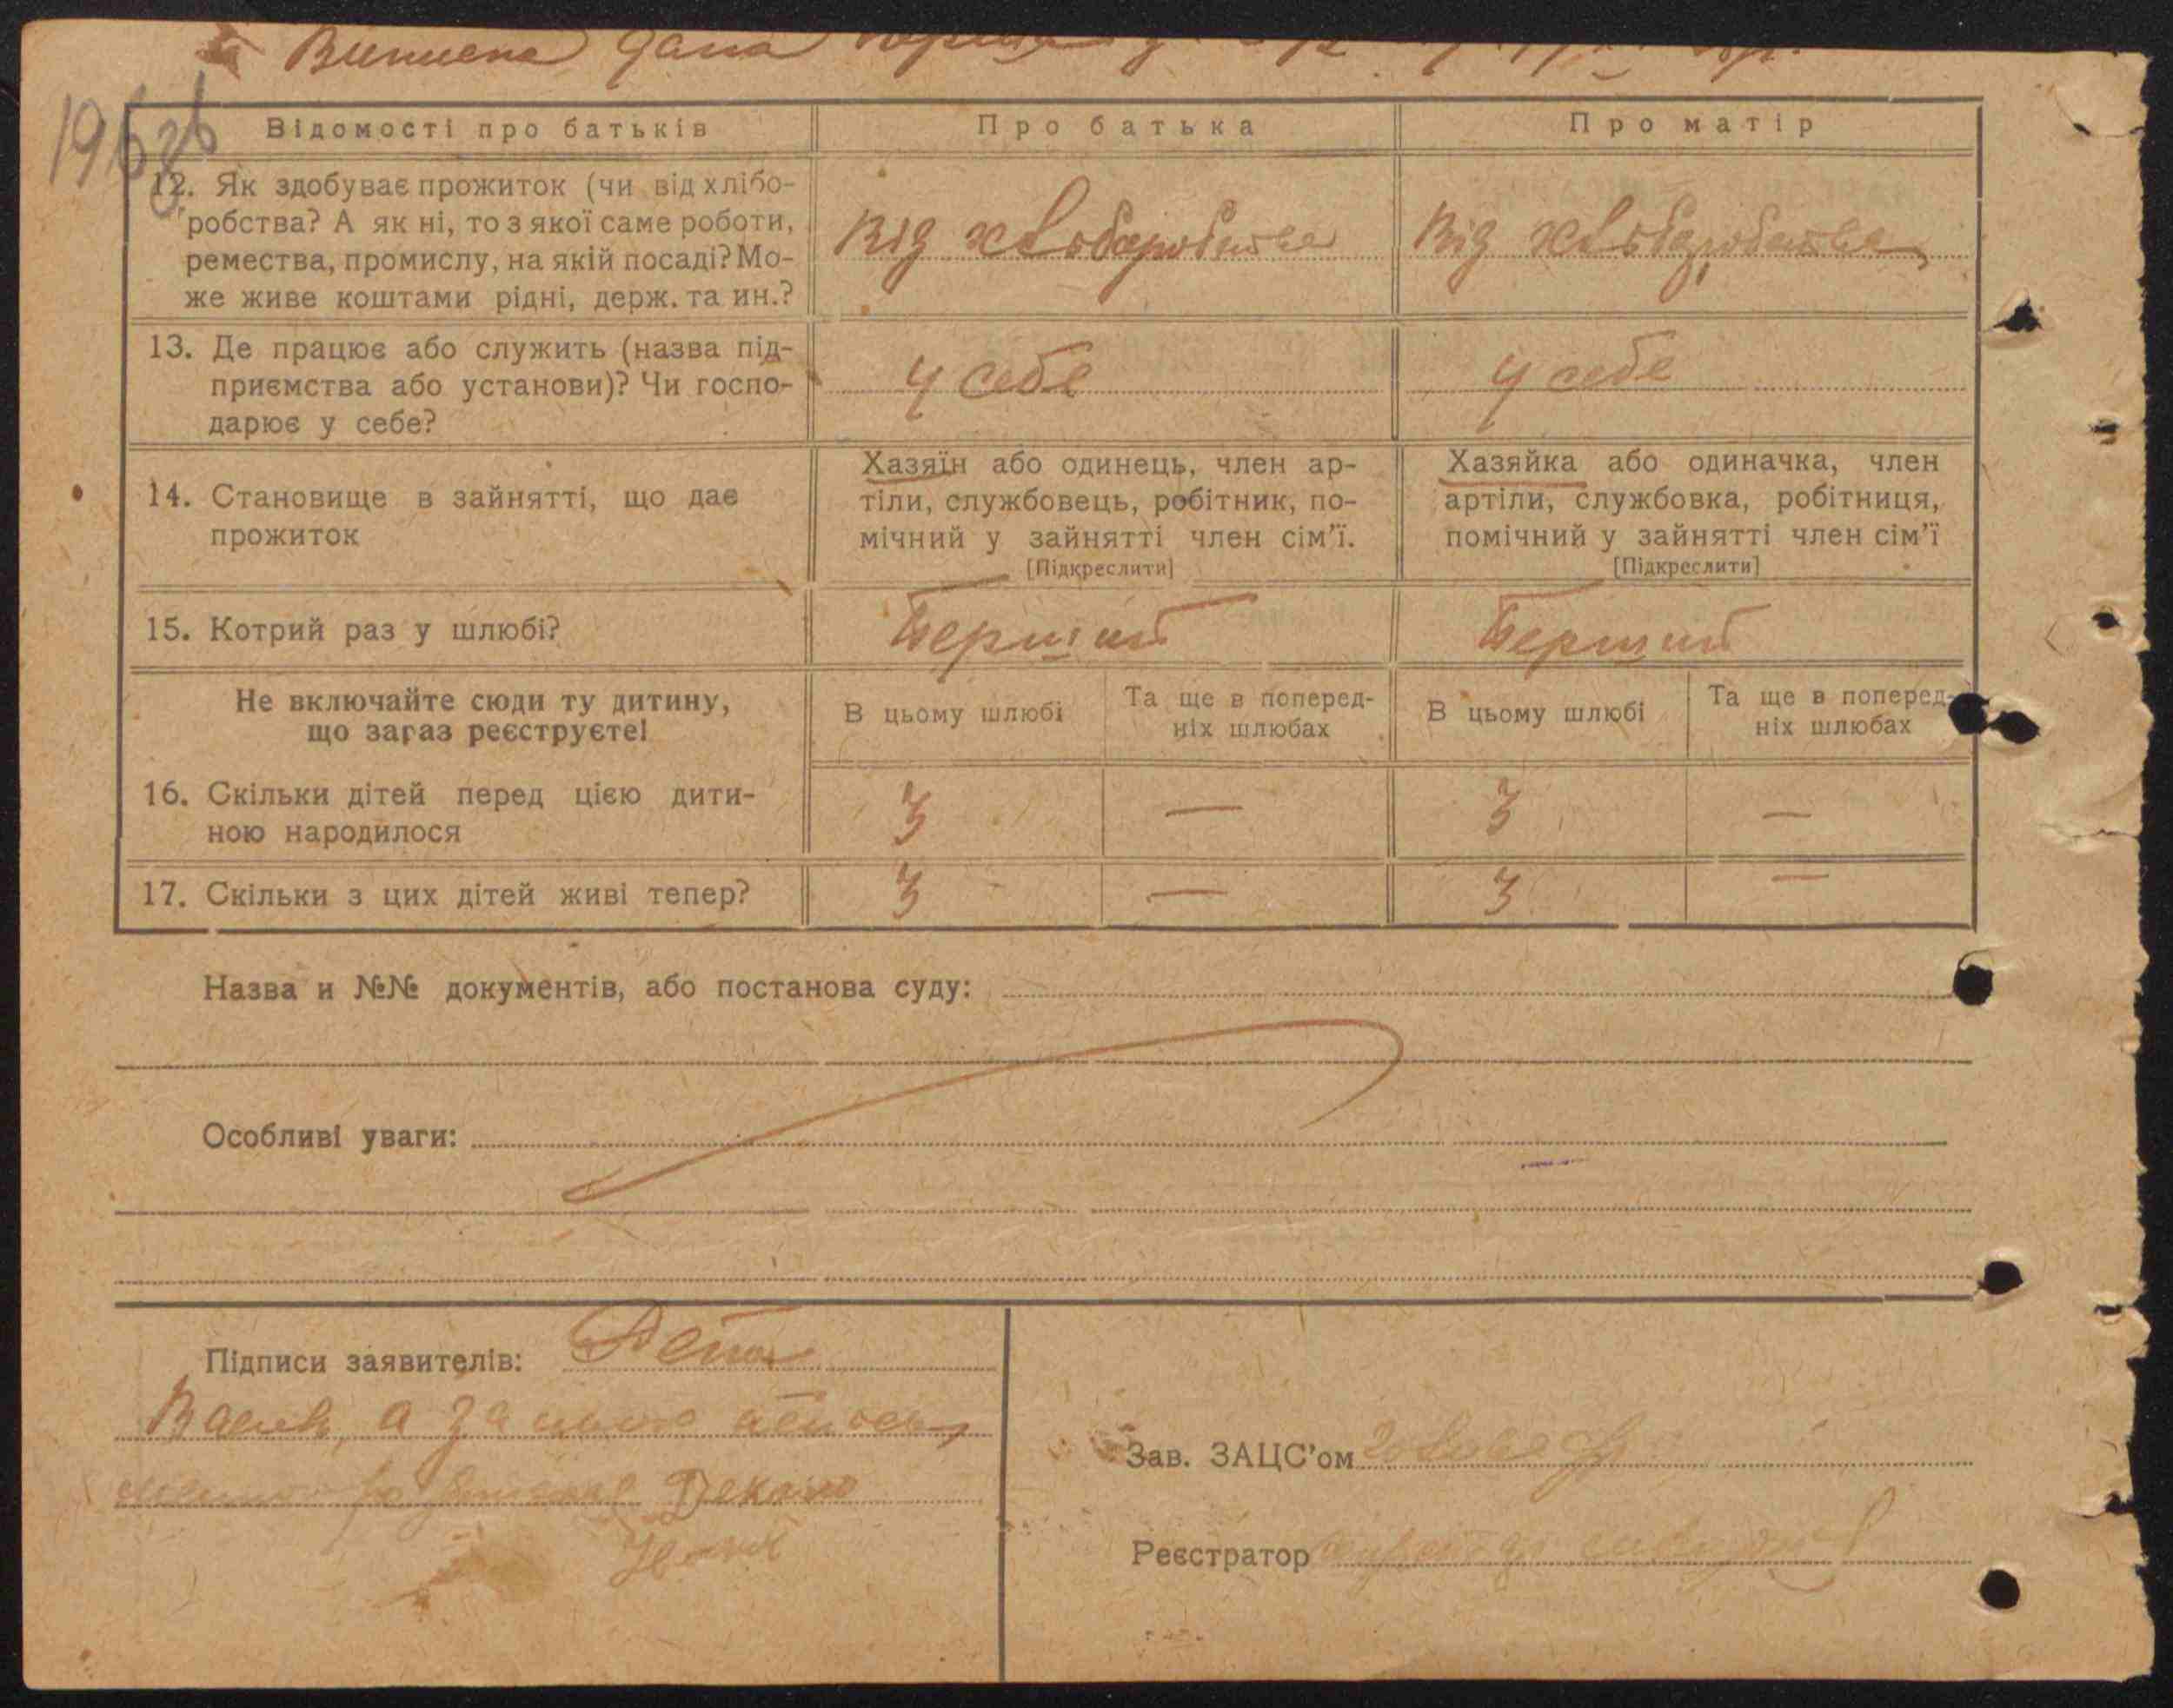 Виписка дана
Відомості про батьків
Про батька
Про матір
12. Як здобуває прожиток (чи від хлібо-
робства? А як ні, то з якої саме роботи,
ремества, промислу, на якій посаді? Мо-
же живе коштами рідні, держ. та ин.?
Від хліборобства
Від хліборобства
13. Де працює або служить (назва під-
приємства або установи)? Чи госпо-
дарює у себе?
У себе
У себе
14. Становище в зайнятті, що дає
прожиток
Хазяїн або одинець, член ар-
тіли, службовець, робітник, по-
мічний у зайнятті член сім'ї.
[Підкреслити]
Хазяйка або одиначка, член
артіли, службовка, робітниця,
помічний у зайнятті член сім'ї
[Підкреслити]
15. Котрий раз у шлюбі?
Перший
Перший
Не включайте сюди ту дитину,
що зараз реєструєте!
В цьому шлюбі
Та ще в поперед-
ніх шлюбах
В цьому шлюбі
Та ще в поперед-
ніх шлюбах
16. Скільки дітей перед цією дити-
ною народилося
3 — 3 —
17. Скільки з цих дітей живі тепер?
3 — 3 —
Назва и №№ документів, або постанова суду:
Особливі уваги:
Підписи заявителів:
а за
Зав. ЗАЦС'ом
Реєстратор